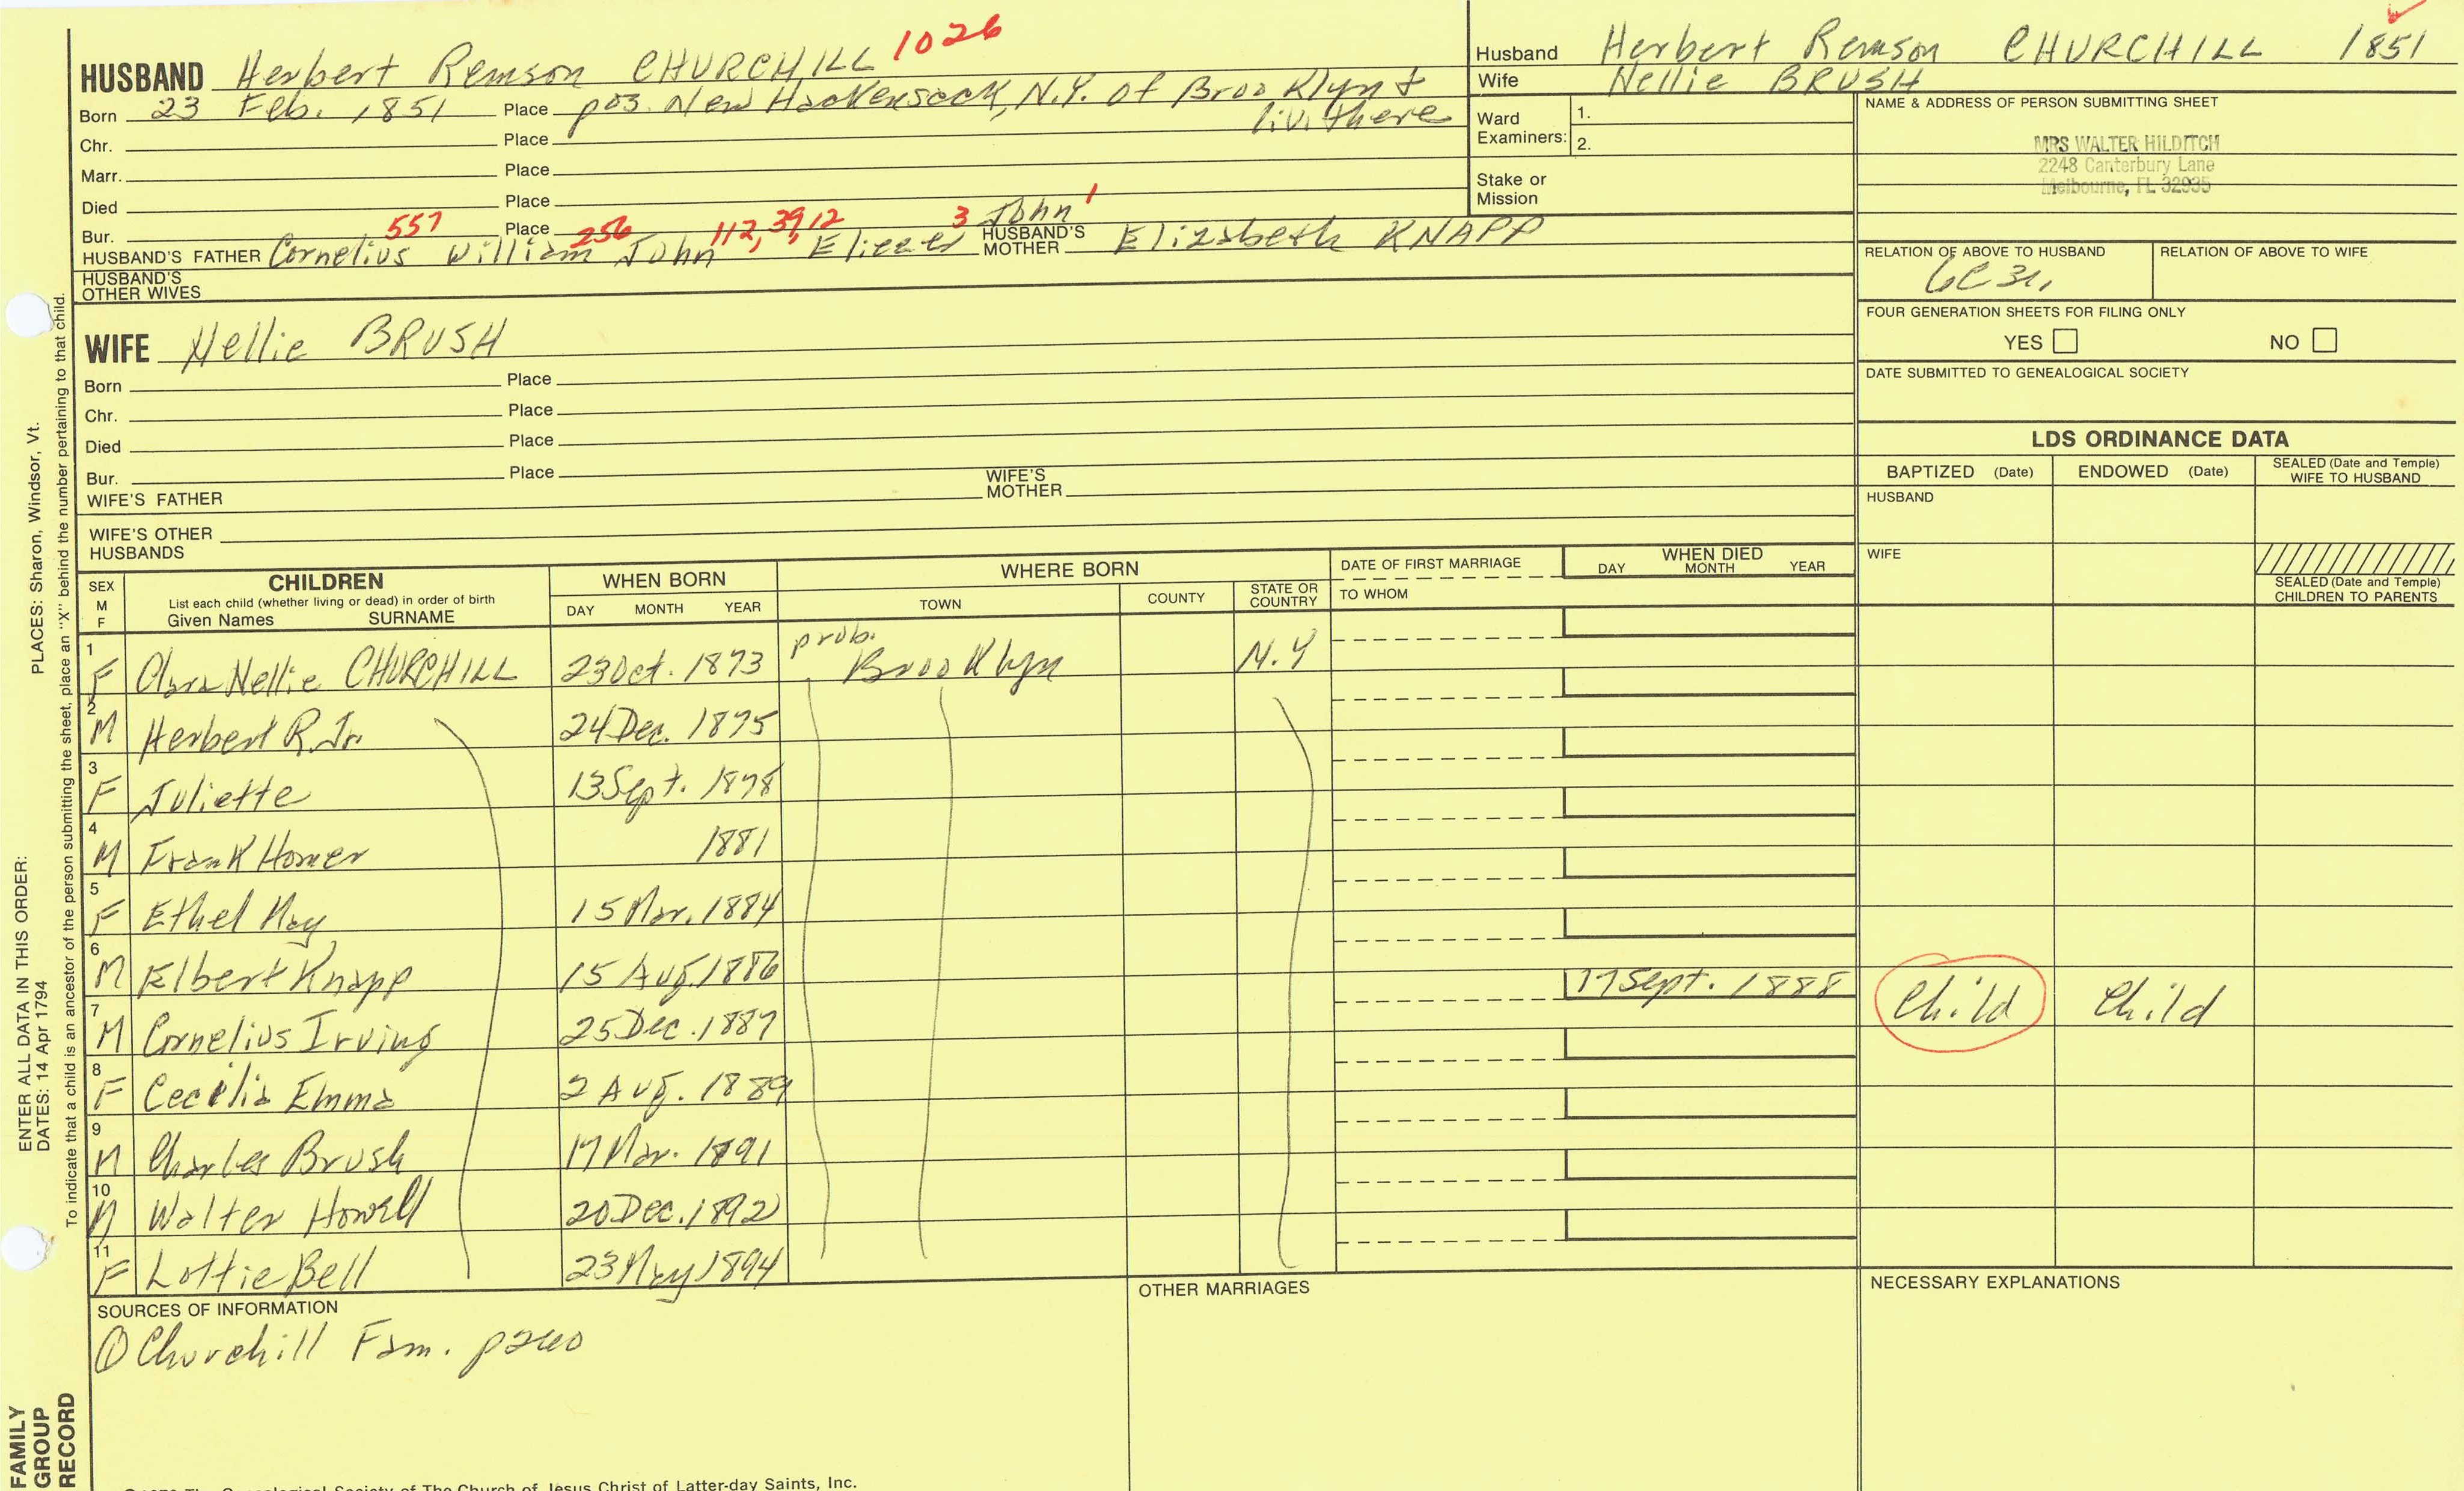 HUSBAND Herbert Remson CHURCHILL 1026
Born 23 Feb. 1851 Place pos. New Hackensack, N.Y. of Brooklyn & liv. there
Chr. Place
Marr. Place
Died Place
Bur. Place
557 256 112, 39, 12 3 John 1
HUSBAND'S FATHER Cornelius William John Eliezer HUSBAND'S MOTHER Elizabeth KNAPP
HUSBAND'S OTHER WIVES
WIFE Nellie BRUSH
Born Place
Chr. Place
Died Place
Bur. Place
WIFE'S FATHER WIFE'S MOTHER
WIFE'S OTHER HUSBANDS
Husband Herbert Remson CHURCHILL 1851
Wife Nellie BRUSH
Ward Examiners: 1.
2.
Stake or Mission
NAME & ADDRESS OF PERSON SUBMITTING SHEET
MRS WALTER HILDITCH
2248 Canterbury Lane
Melbourne, FL 32935
RELATION OF ABOVE TO HUSBAND RELATION OF ABOVE TO WIFE
6C3r.
FOUR GENERATION SHEETS FOR FILING ONLY
YES NO
DATE SUBMITTED TO GENEALOGICAL SOCIETY
LDS ORDINANCE DATA
BAPTIZED (Date) ENDOWED (Date) SEALED (Date and Temple) WIFE TO HUSBAND
HUSBAND
WIFE
SEALED (Date and Temple) CHILDREN TO PARENTS
SEX M F CHILDREN WHEN BORN WHERE BORN DATE OF FIRST MARRIAGE WHEN DIED
List each child (whether living or dead) in order of birth
Given Names SURNAME DAY MONTH YEAR TOWN COUNTY STATE OR COUNTRY TO WHOM DAY MONTH YEAR
1 F Clara Nellie CHURCHILL 23 Oct. 1873 prob. Brooklyn N.Y
2 M Herbert R. Jr. 24 Dec. 1875
3 F Juliette 13 Sept. 1878
4 M Frank Homer 1881
5 F Ethel May 15 Mar. 1884
6 M Elbert Knapp 15 Aug. 1886 17 Sept. 1888 Child Child
7 M Cornelius Irving 25 Dec. 1887
8 F Cecelia Emma 2 Aug. 1889
9 M Charles Brush 17 Mar. 1891
10 M Walter Howell 20 Dec. 1892
11 F Lottie Bell 23 May 1894
SOURCES OF INFORMATION
① Churchill Fam.
OTHER MARRIAGES
NECESSARY EXPLANATIONS
ENTER ALL DATA IN THIS ORDER:
DATES: 14 Apr 1794 PLACES: Sharon, Windsor, Vt.
To indicate that a child is an ancestor of the person submitting the sheet, place an "X" behind the number pertaining to that child.
FAMILY GROUP RECORD
Genealogical Society of The Church of Jesus Christ of Latter-day Saints, Inc.